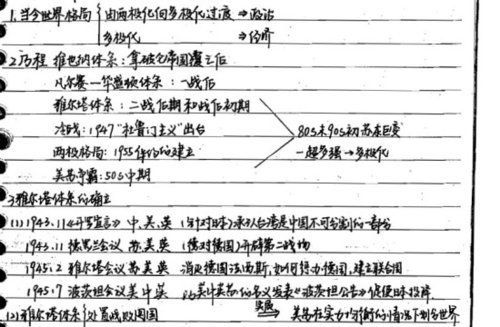 1.当今世界格局 { 由两极化向多极化过渡 ⇒ 政治
多极化 ⇒ 经济
2.历程 维也纳体系:拿破仑帝国覆亡后
凡尔赛—华盛顿体系:一战后
雅尔塔体系:二战后期和战后初期
冷战:1947"杜鲁门主义"出台 80s末90s初苏东巨变
两极格局:1955 华约的建立 一超多强→多极化
美苏争霸:50s中期
3.雅尔塔体系的确立
(1)1943.11《开罗宣言》中.美.英 (针对日本)承认台湾是中国不可分割的一部分
1943.11 德黑兰会议 苏.美.英 (针对德国)开辟第二战场
1945.2 雅尔塔会议苏美英 消灭德国法西斯,如何惩办德国,建立联合国
1945.7 波茨坦会议美中英 以美中英的名义发表《波茨坦公告》促使日本投降
(2)雅尔塔体系{处置战败国 实质⇒ 美苏在实力均衡的情况下划分世界